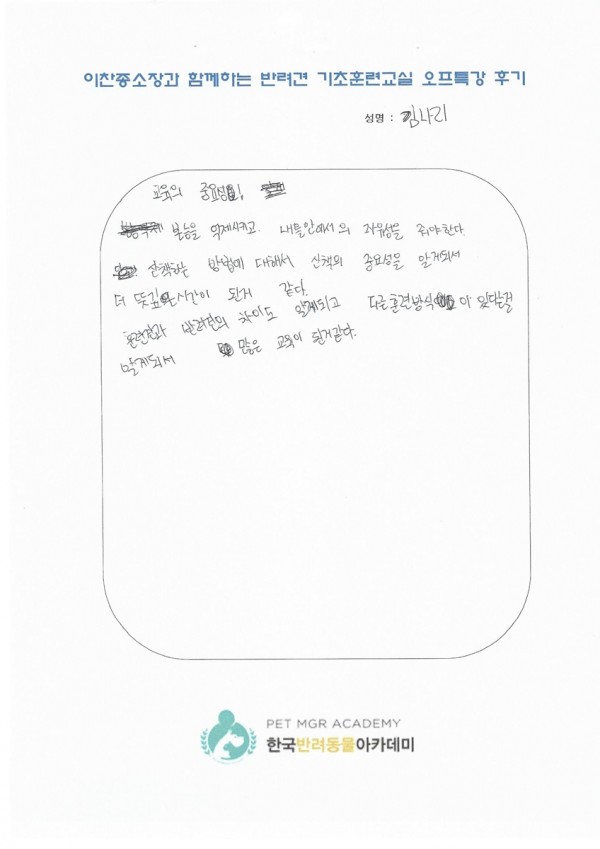 이찬종소장과 함께하는 반려견 기초훈련교실 오프특강 후기
성명 : 김나리
교육의 중요성!
본능을 억제시키고. 내틀안에서의 자유성을 줘야한다.
산책하는 방법에 대해서 산책의 중요성을 알게되서
더 뜻깊은시간이 된거 같다.
훈련견과 반려견의 차이도 알게되고 다른훈련방식이 있단걸
알게되서 많은 교육이 된거같다.
PET MGR ACADEMY
한국반려동물아카데미